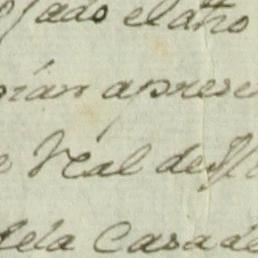 jado el año
rian aprese
Real de
dela Casa de